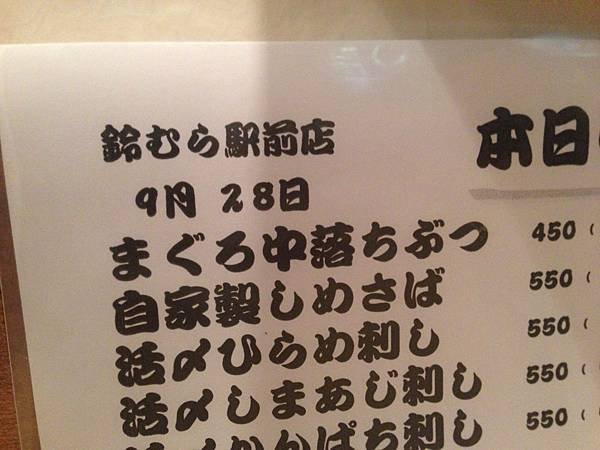 鈴むら駅前店
本日
9月 28日
まぐろ中落ちぶつ 450 (
自家製しめさば 550 (
活〆ひらめ刺し 550 (
活〆しまあじ刺し 550 (
活〆かんぱち刺し 550 (